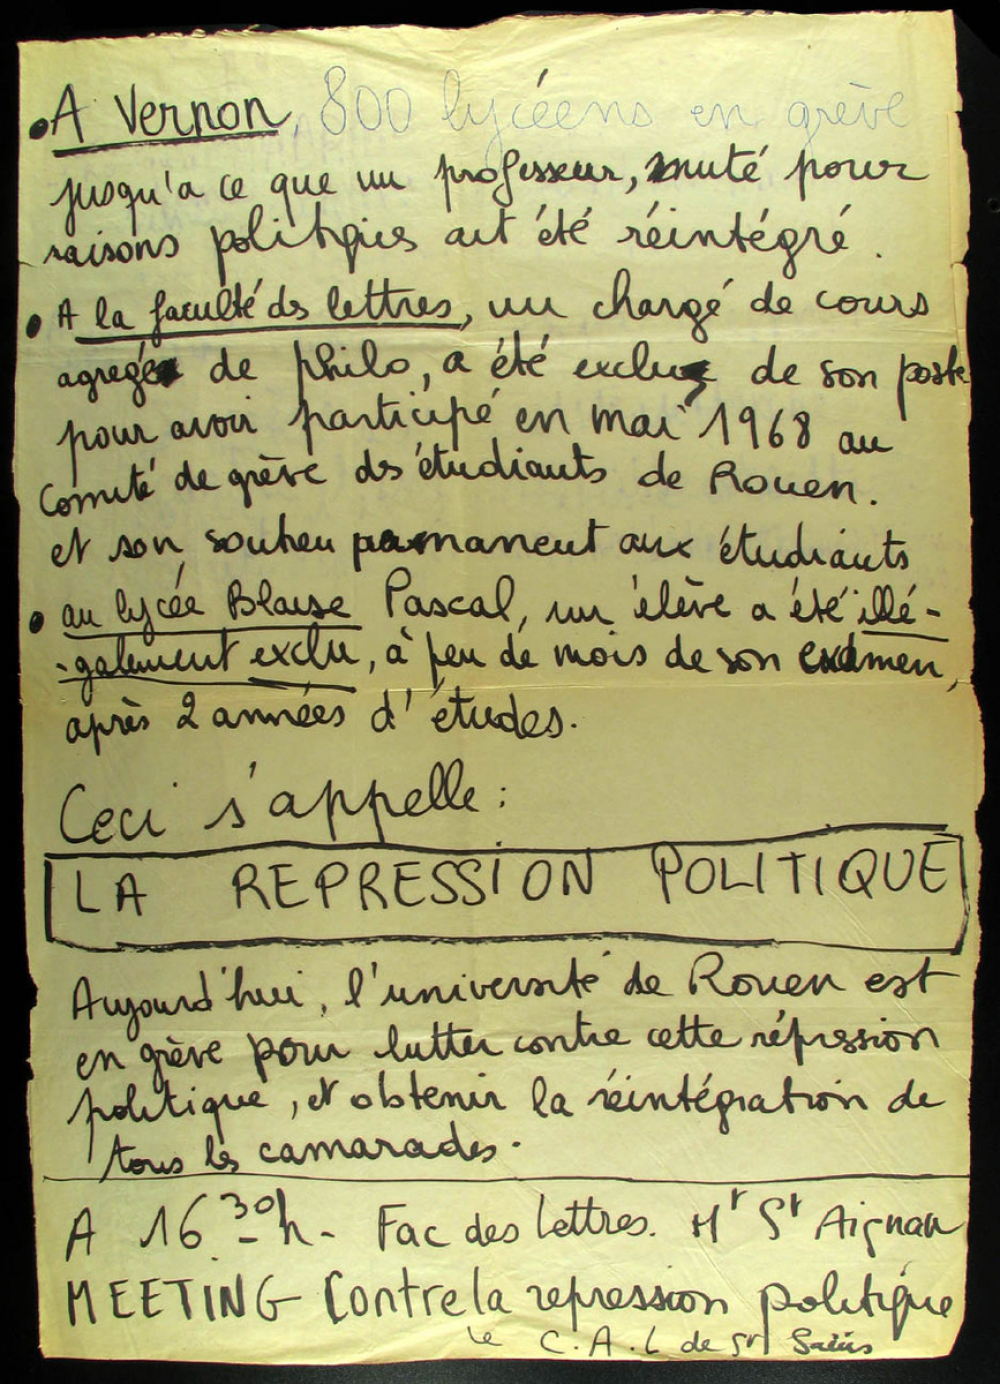 • A Vernon, 800 lycéens en grève
jusqu'a ce que un professeur, muté pour
raisons politiques ait été réintégré.
• A la faculté des lettres, un chargé de cours
agregé de philo, a été exclu de son poste
pour avoir participé en mai 1968 au
Comité de grève des étudiants de Rouen.
et son soutien permanent aux étudiants
• au lycée Blaise Pascal, un élève a été illé-
-galement exclu, à peu de mois de son examen,
après 2 années d'études.
Ceci s'appelle:
LA REPRESSION POLITIQUE
Aujourd'hui, l'université de Rouen est
en grève pour lutter contre cette répression
politique, et obtenir la réintégration de
tous les camarades.
A 16 30h - Fac des Lettres. Mt St Aignan
MEETING Contre la repression politique
Le C.A.L de St